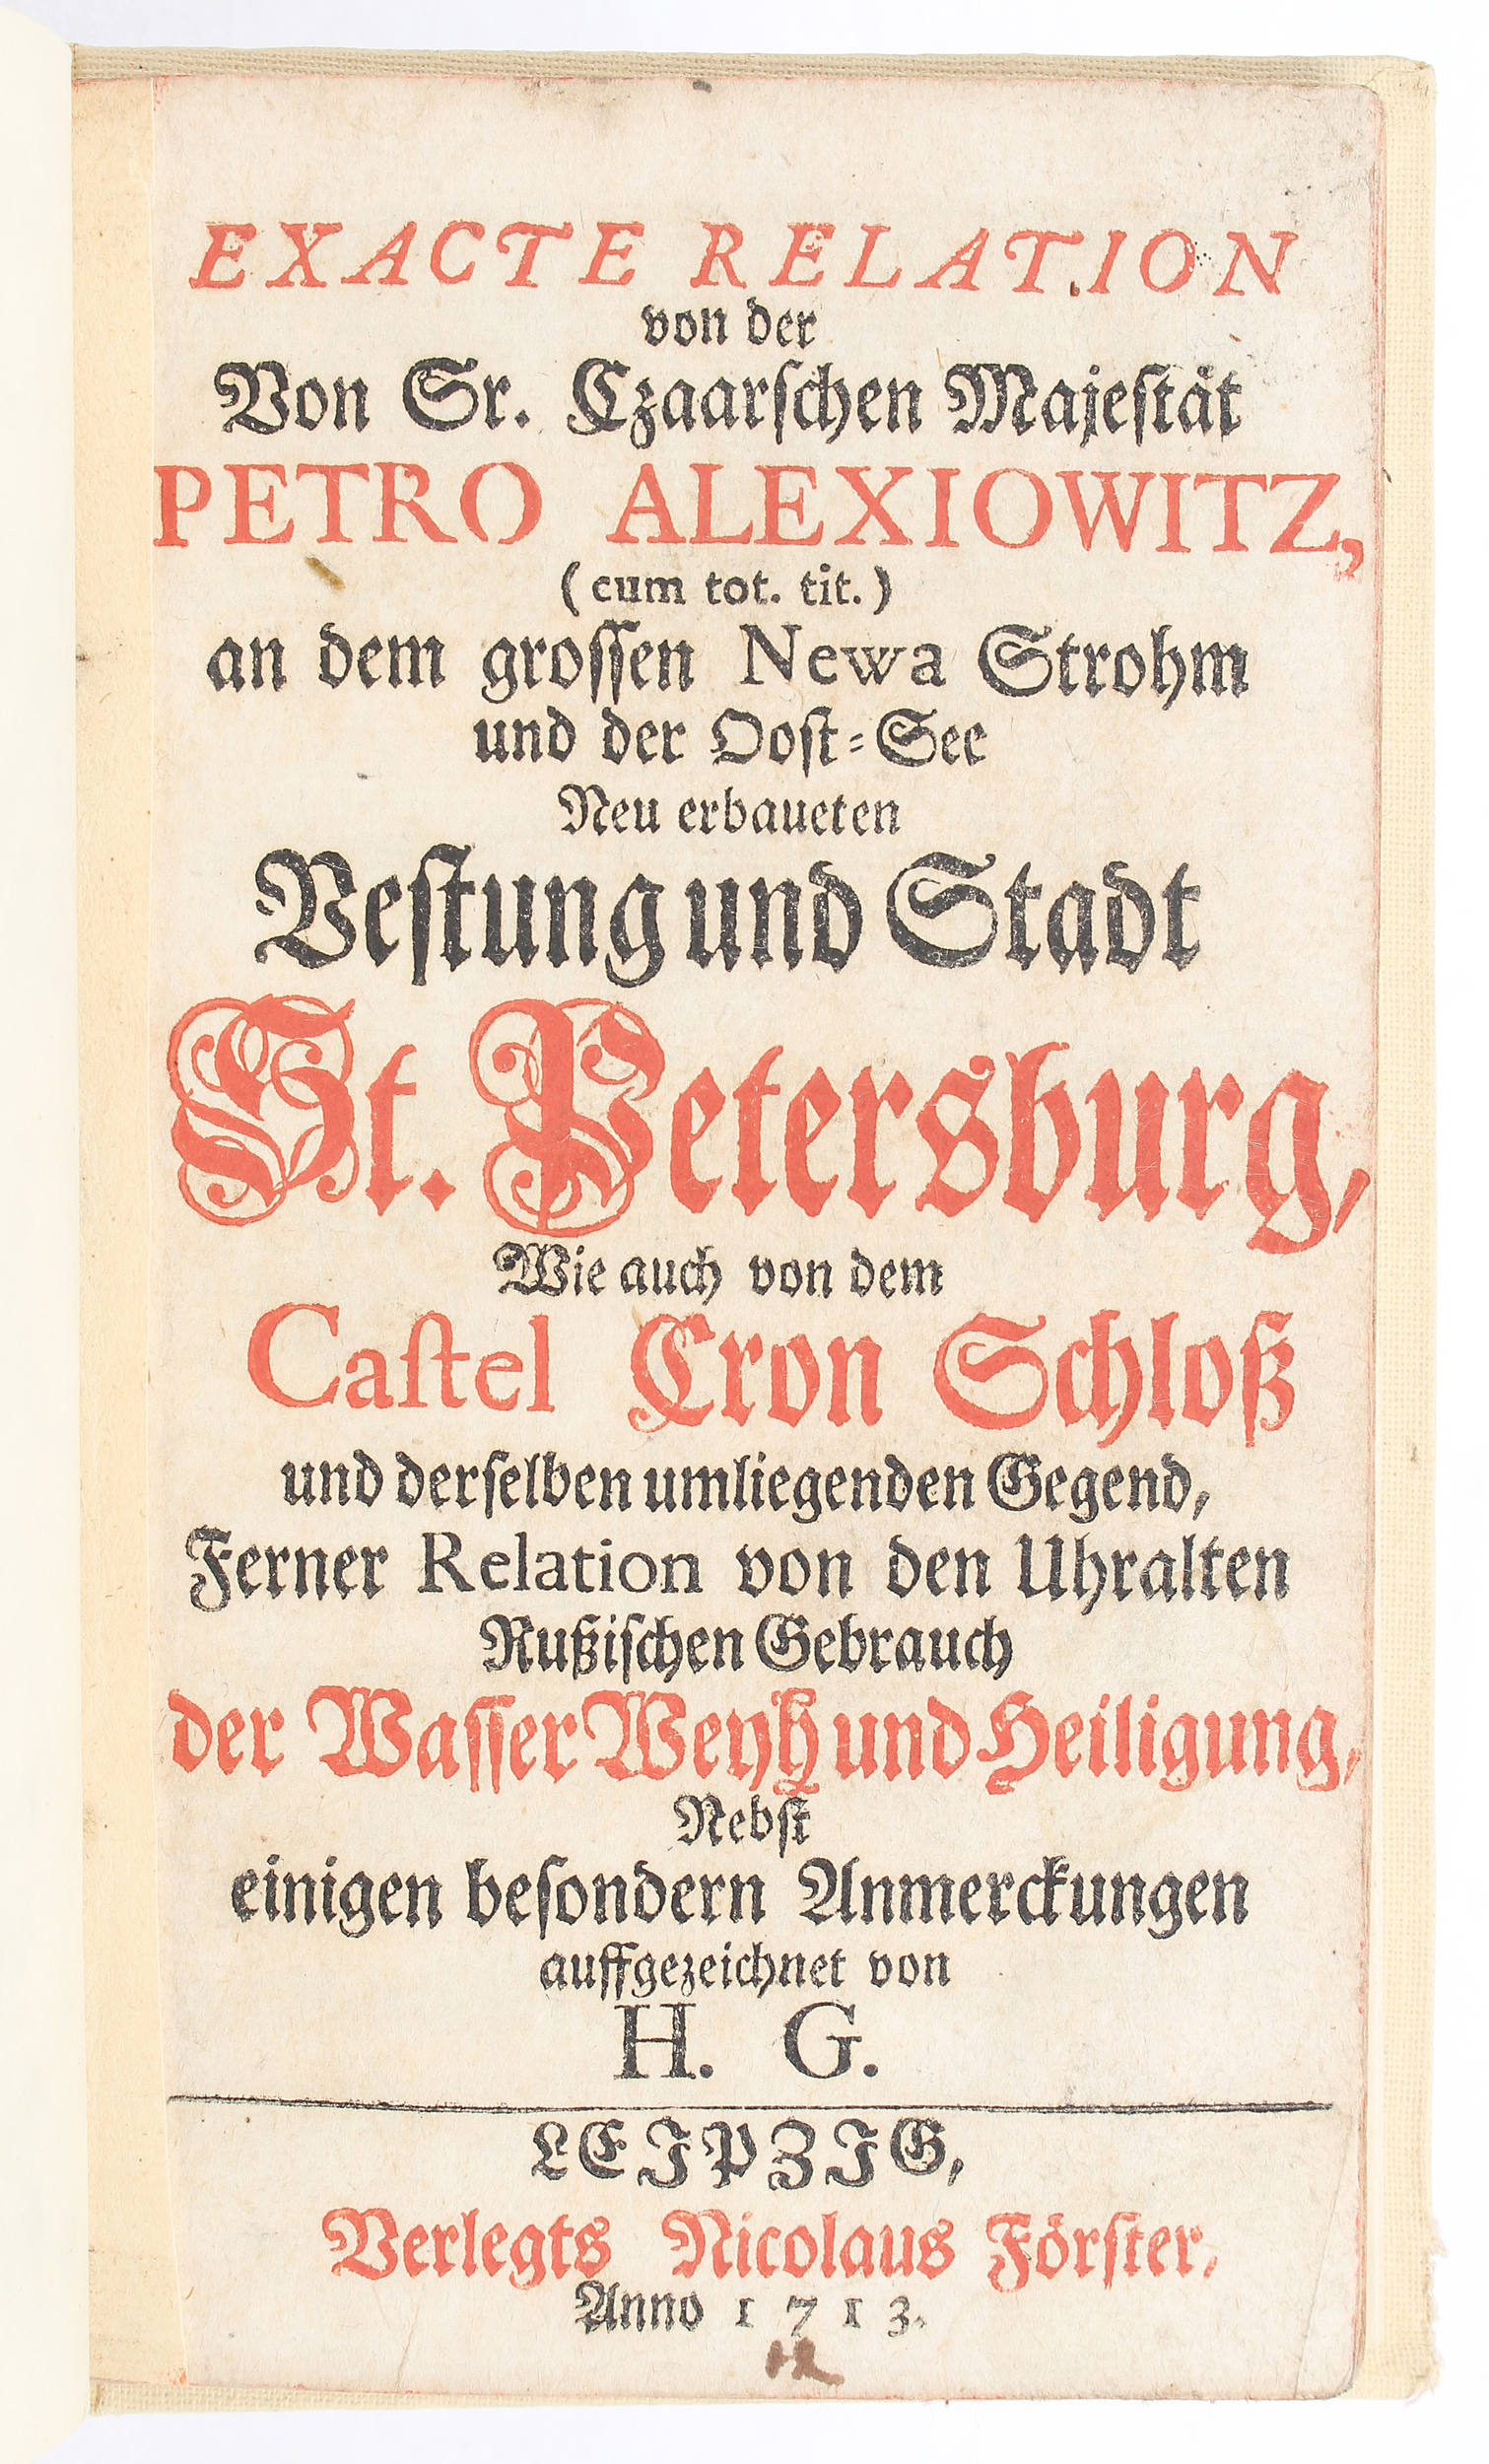 EXACTE RELATION
von der
Von Sr. Czaarſchen Majeſtät
PETRO ALEXIOWITZ,
(cum tot. tit.)
an dem groſſen Newa Strohm
und der Ooſt-See
Neu erbaueten
Veſtung und Stadt
St. Petersburg,
Wie auch von dem
Caſtel Cron Schloß
und derſelben umliegenden Gegend,
Ferner Relation von den Uhralten
Rußiſchen Gebrauch
der Waſſer Weyh und Heiligung,
Nebſt
einigen beſondern Anmerckungen
auffgezeichnet von
H. G.
LEIPZIG,
Verlegts Nicolaus Förſter,
Anno 1713.